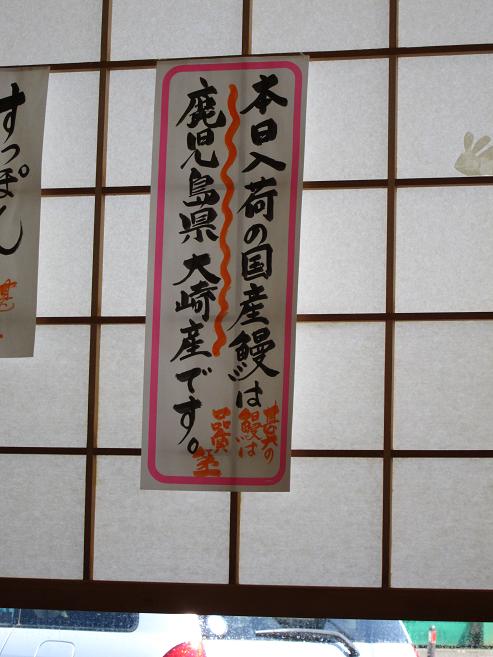 本日入荷の国産鰻は
鹿児島県大崎産です。
鰻は
品質
すっぽん